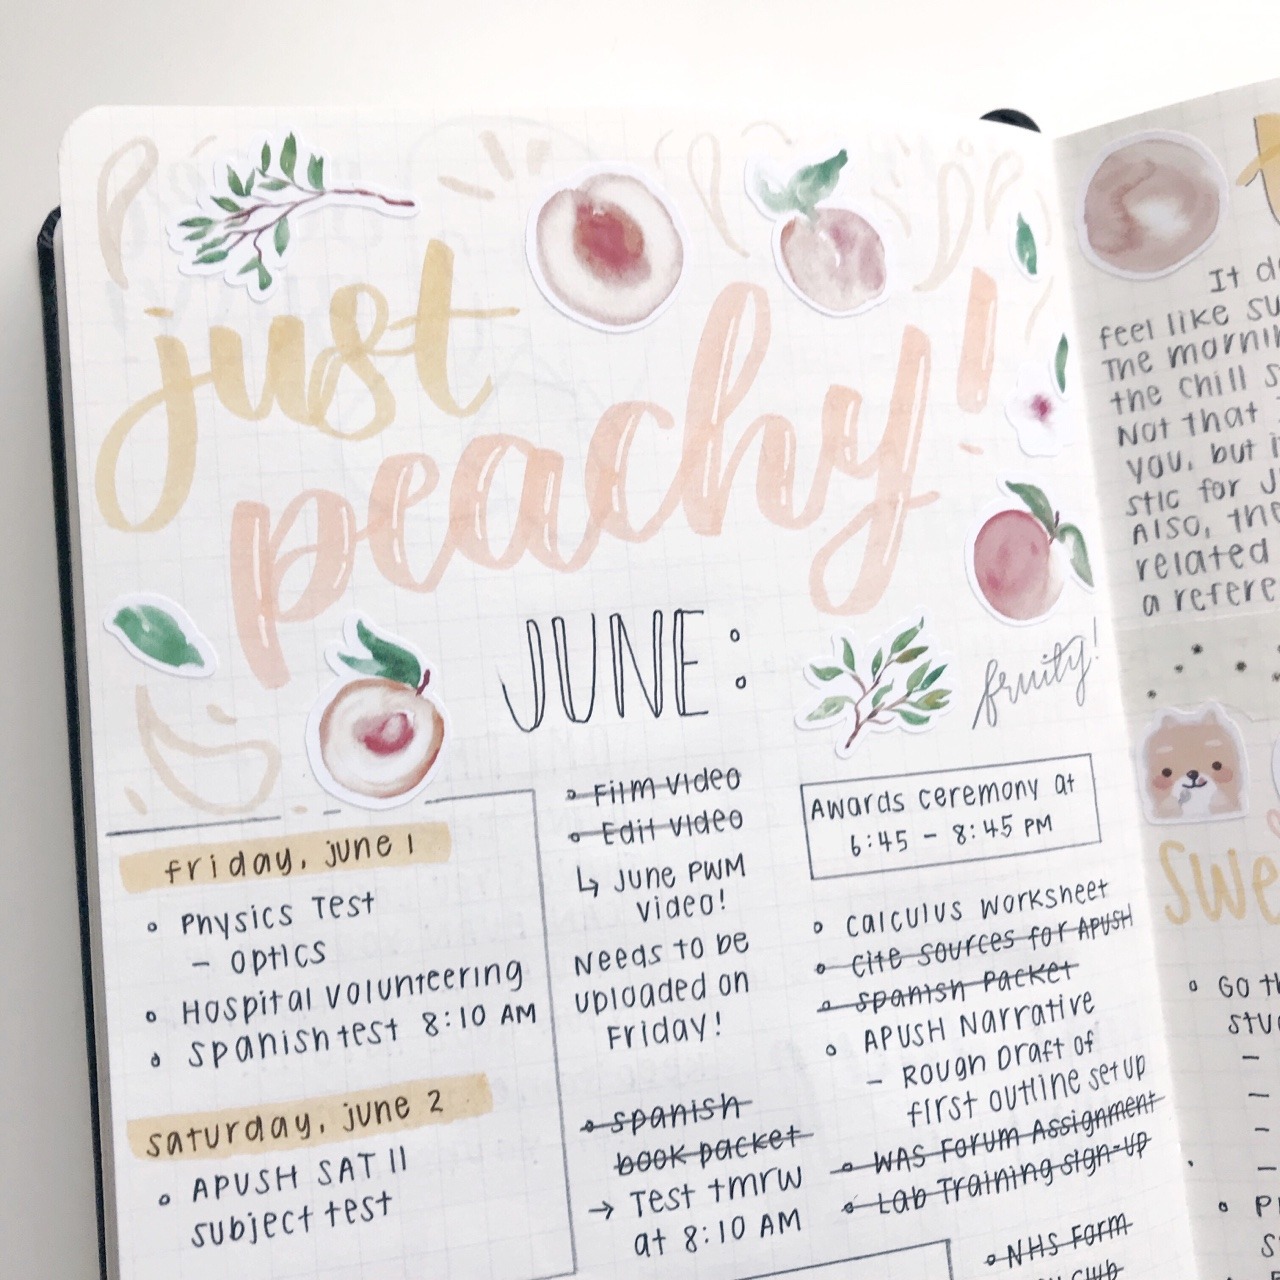 just
peachy!
JUNE:
fruity!
friday, june 1
Physics Test
- optics
Hospital volunteering
spanish test 8:10 AM
saturday, june 2
APUSH SAT II
subject test
Film video
Edit video
↳ June PWM
video!
Needs to be
uploaded on
Friday!
spanish
book packet
→ Test tmrw
at 8:10 AM
Awards ceremony at
6:45 - 8:45 PM
calculus worksheet
cite sources for APUSH
spanish packet
APUSH Narrative
- Rough Draft of
first outline set up
WAS Forum Assignment
Lab Training sign-up
NHS Form
club
It
feel like
The
the chill
Not that
you, but
stic for
Also, the
related
a
Go